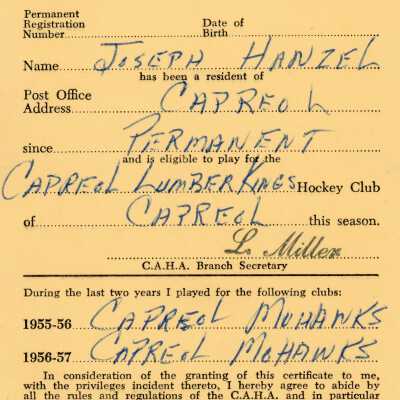 Permanent
Registration Date of
Number Birth
Name JOSEPH HANZEL
has been a resident of
Post Office
Address CAPREOL
since PERMANENT
and is eligible to play for the
CAPREOL LUMBER KINGS Hockey Club
of CAPREOL this season.
L. Miller
C.A.H.A. Branch Secretary
During the last two years I played for the following clubs:
1955-56 CAPREOL MOHAWKS
1956-57 CAPREOL MOHAWKS
In consideration of the granting of this certificate to me,
with the privileges incident thereto, I hereby agree to abide by
all the rules and regulations of the C.A.H.A. and in particular